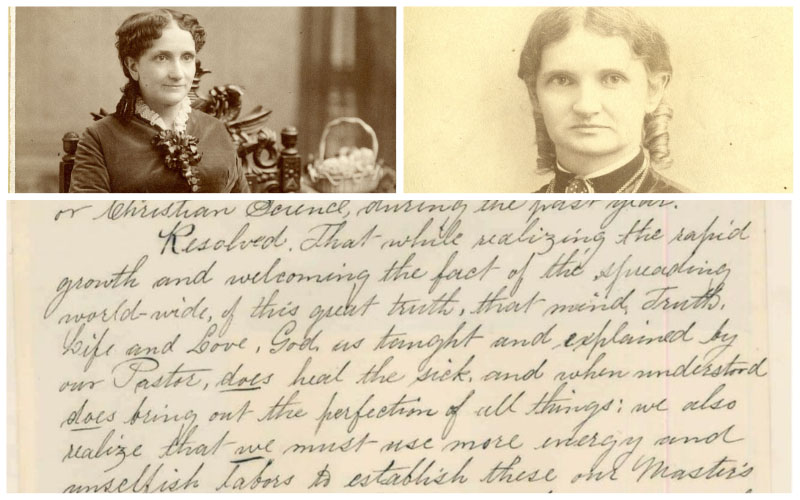 or Christian Science, during the past year.
Resolved. That while realizing the rapid
growth and welcoming the fact of the spreading
world-wide, of this great truth, that mind, Truth,
Life and Love, God, as taught and explained by
our Pastor, does heal the sick, and when understood
does bring out the perfection of all things; we also
realize that we must use more energy and
unselfish labors to establish these our Master's